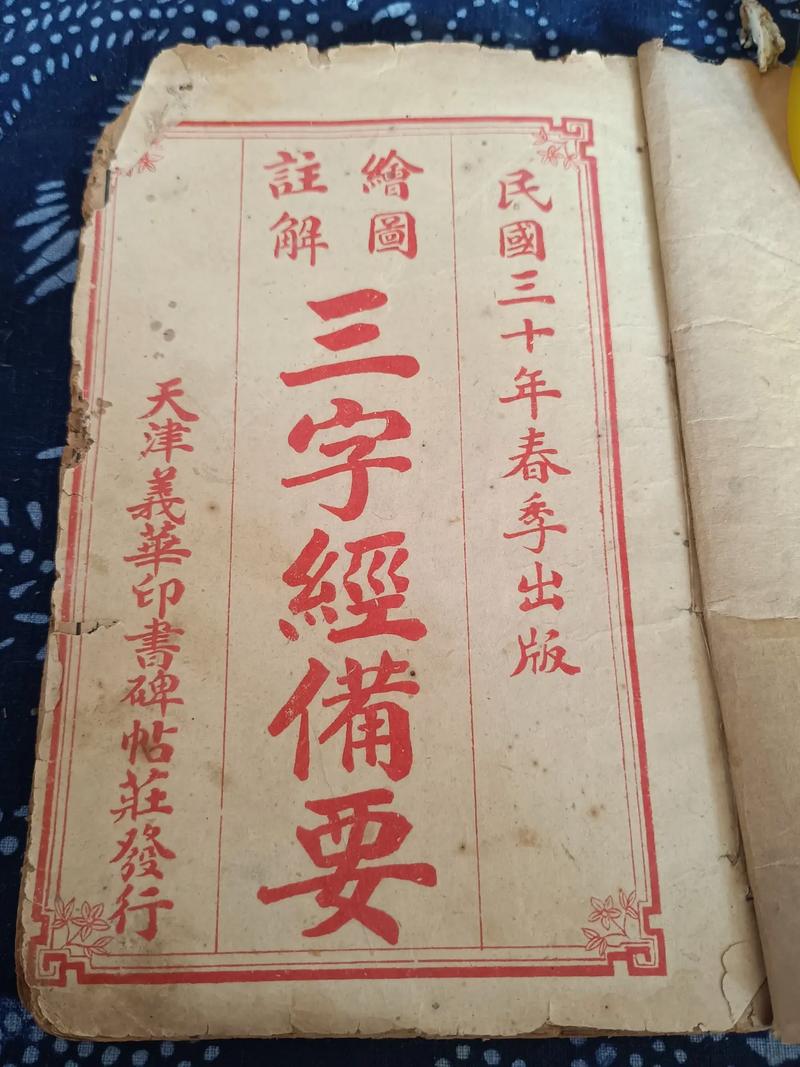 民國三十年春季出版
繪圖
註解
三字經備要
天津義華印書碑帖莊發行